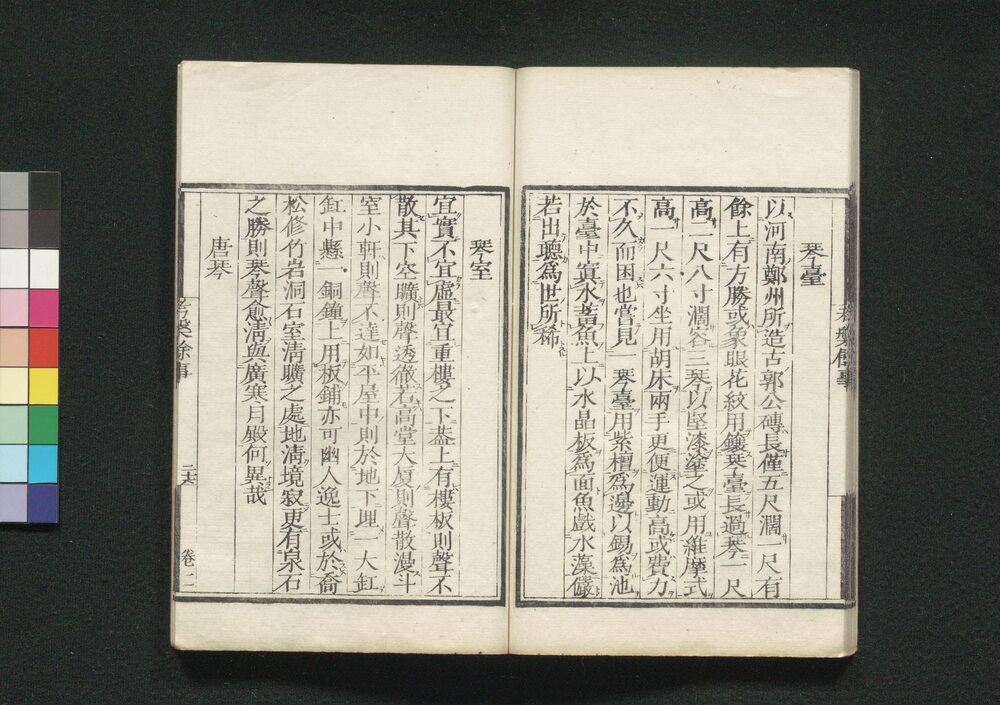 琴臺
以河南鄭州所造古郭公磚長僅五尺濶一尺有
餘上有方勝或象眼花紋用鑲琴臺長過琴一尺
高二尺八寸濶容三琴以堅漆塗之或用維摩式
高一尺六寸坐用胡床兩手更便運動高或費力
不久而困也嘗見一琴臺用紫檀爲邊以錫爲池
於臺中寘水蓄魚上以水晶板爲面魚戲水藻儼
若出聽爲世所稀
琴室
宜實不宜虛最宜重樓之下葢上有樓板則聲不
散其下空曠則聲透徹若高堂大厦則聲散漫斗
室小軒則聲不達如平屋中則於地下埋一大缸
缸中懸一銅鐘上用板鋪亦可幽人逸士或於喬
松修竹岩洞石室清曠之處地清境寂更有泉石
之勝則琴聲愈清與廣寒月殿何異哉
唐琴
考槃餘事
二六
卷二